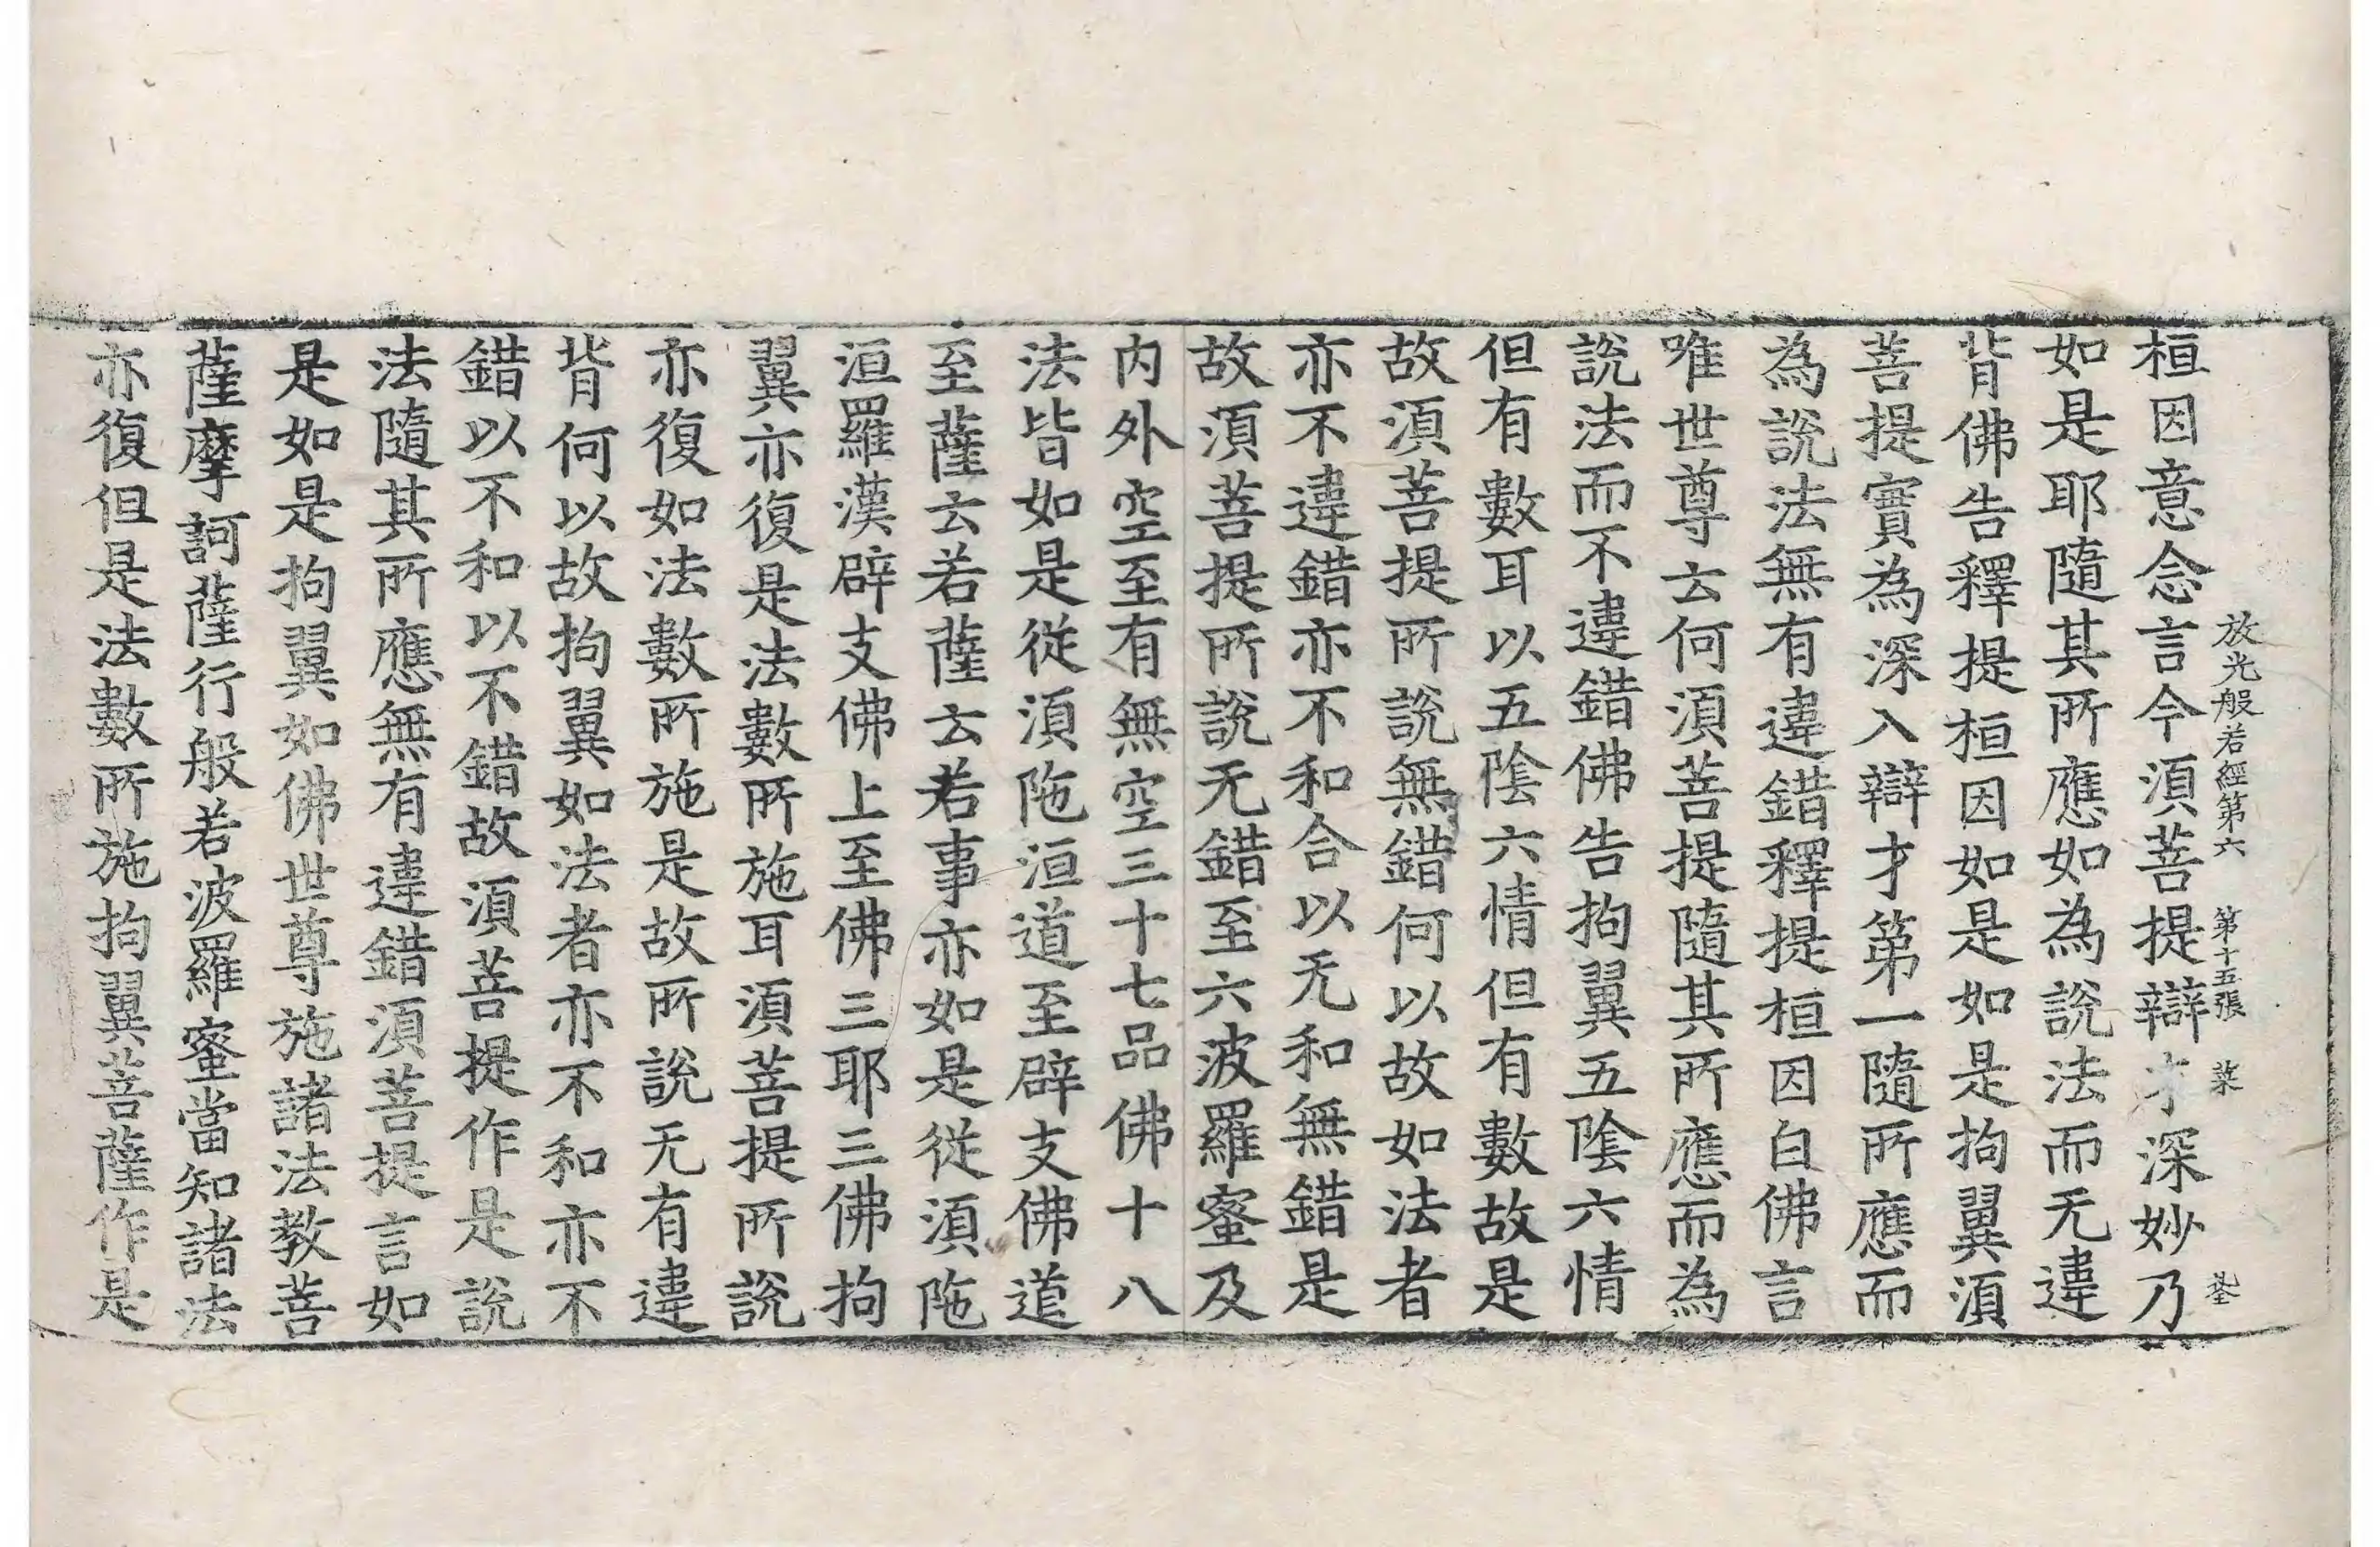 放光般若經第六 第十五張 菜
桓因意念言今湏菩提辯才深妙乃
如是耶隨其所應如為說法而无違
背佛告釋提桓因如是如是拘翼湏
菩提實為深入辯才第一隨所應而
為說法無有違錯釋提桓因白佛言
唯世尊云何湏菩提隨其所應而為
說法而不違錯佛告拘翼五陰六情
但有數耳以五陰六情但有數故是
故湏菩提所說無錯何以故如法者
亦不違錯亦不和合以无和無錯是
故湏菩提所說无錯至六波羅蜜及
内外空至有無空三十七品佛十八
法皆如是從湏陁洹道至辟支佛道
至薩云若薩云若事亦如是從湏陁
洹羅漢辟支佛上至佛三耶三佛拘
翼亦復是法數所施耳湏菩提所說
亦復如法數所施是故所說无有違
背何以故拘翼如法者亦不和亦不
錯以不和以不錯故湏菩提作是說
法隨其所應無有違錯湏菩提言如
是如是拘翼如佛世尊施諸法教菩
薩摩訶薩行般若波羅蜜當知諸法
亦復但是法數所施拘翼菩薩作是